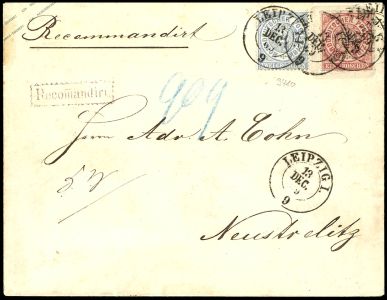 Recommandirt
LEIPZIG I.
13
DEC.
9
Recomandirt
909
Herrn Adv A. Cohn
LEIPZIG I.
13
DEC.
9
Neustrelitz